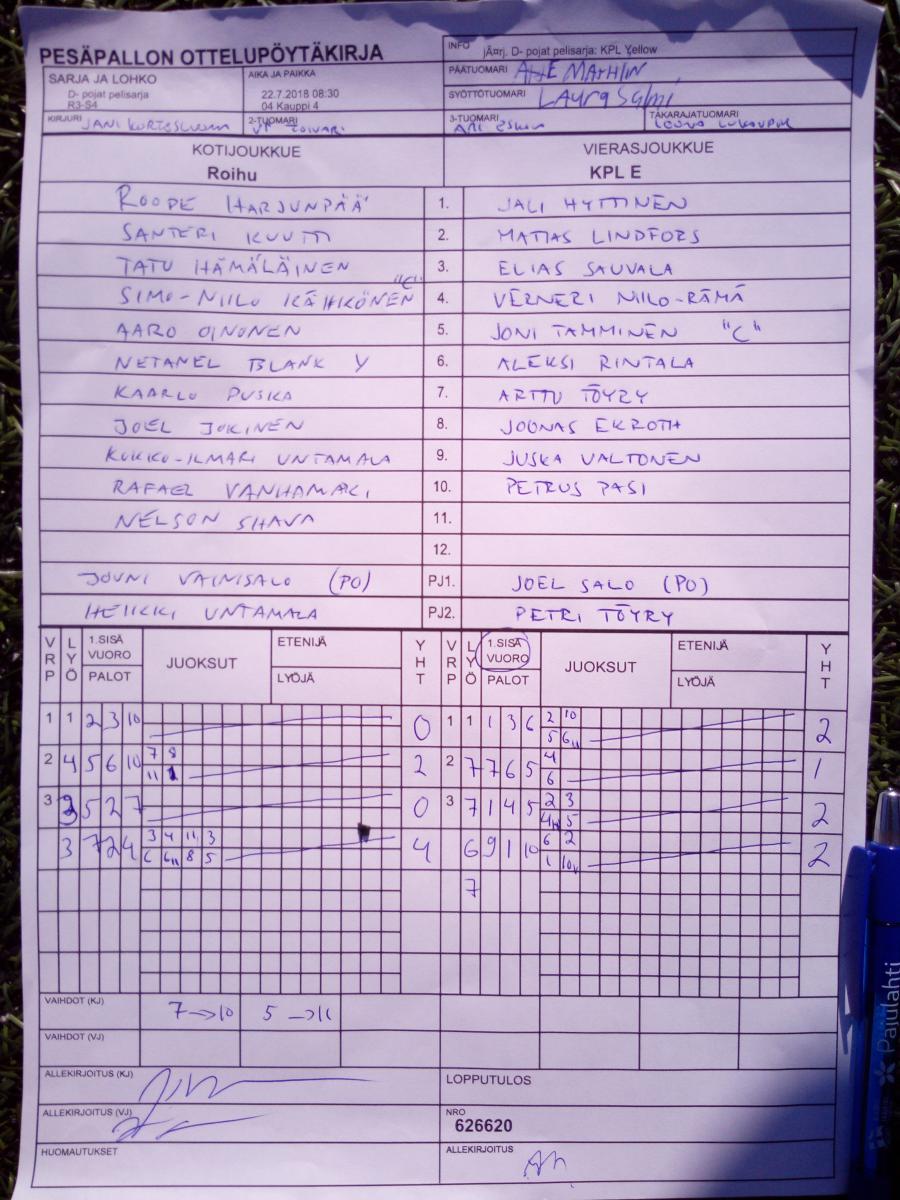 PESÄPALLON OTTELUPÖYTÄKIRJA
INFO jÄ¤rj. D- pojat pelisarja: KPL Yellow
PÄÄTUOMARI
SYÖTTÖTUOMARI Laura Salmi
SARJA JA LOHKO
D- pojat pelisarja
R3-S4
AIKA JA PAIKKA
22.7.2018 08:30
04 Kauppi 4
KIRJURI JANI
2-TUOMARI
3-TUOMARI ARI
TAKARAJATUOMARI
KOTIJOUKKUE VIERASJOUKKUE
Roihu KPL E
ROOPE HARJUNPÄÄ 1. JALI HYTTINEN
SANTERI KUUTTI 2. MATIAS LINDFORS
TATU HÄMÄLÄINEN 3. ELIAS SAUVALA
SIMO-NIILO KÄHKÖNEN "C" 4. VERNERI NIILO-RÄMÄ
AARO OINONEN 5. JONI TAMMINEN "C"
NETANEL BLANK Y 6. ALEKSI RINTALA
KAARLO PUSKA 7. ARTTU TÖYRY
JOEL JOKINEN 8. JOONAS EKROTH
KUKKO-ILMARI UNTAMALA 9. JUSKA VALTONEN
RAFAEL VANHAMÄKI 10. PETRUS PASI
NELSON SHAVA 11.
12.
JOUNI VAINISALO (PO) PJ1. JOEL SALO (PO)
HEIKKI UNTAMALA PJ2. PETRI TÖYRY
VRP LYÖ 1.SISÄ VUORO PALOT JUOKSUT ETENIJÄ LYÖJÄ YHT VRP LYÖ 1.SISÄ VUORO PALOT JUOKSUT ETENIJÄ LYÖJÄ YHT
1 1 2 3 10 0 1 1 1 3 6 2 10 2
5 6
2 4 5 6 10 7 8 2 2 7 7 6 5 4 1
11 1 6
3 3 5 2 7 0 3 7 1 4 5 2 3 2
4 5
3 7 2 4 3 4 11 3 4 6 9 1 10 6 2 2
6 6 8 5 1 10
7
VAIHDOT (KJ) 7→10 5→11
VAIHDOT (VJ)
ALLEKIRJOITUS (KJ) LOPPUTULOS
ALLEKIRJOITUS (VJ) NRO
626620
HUOMAUTUKSET ALLEKIRJOITUS
Pajulahti